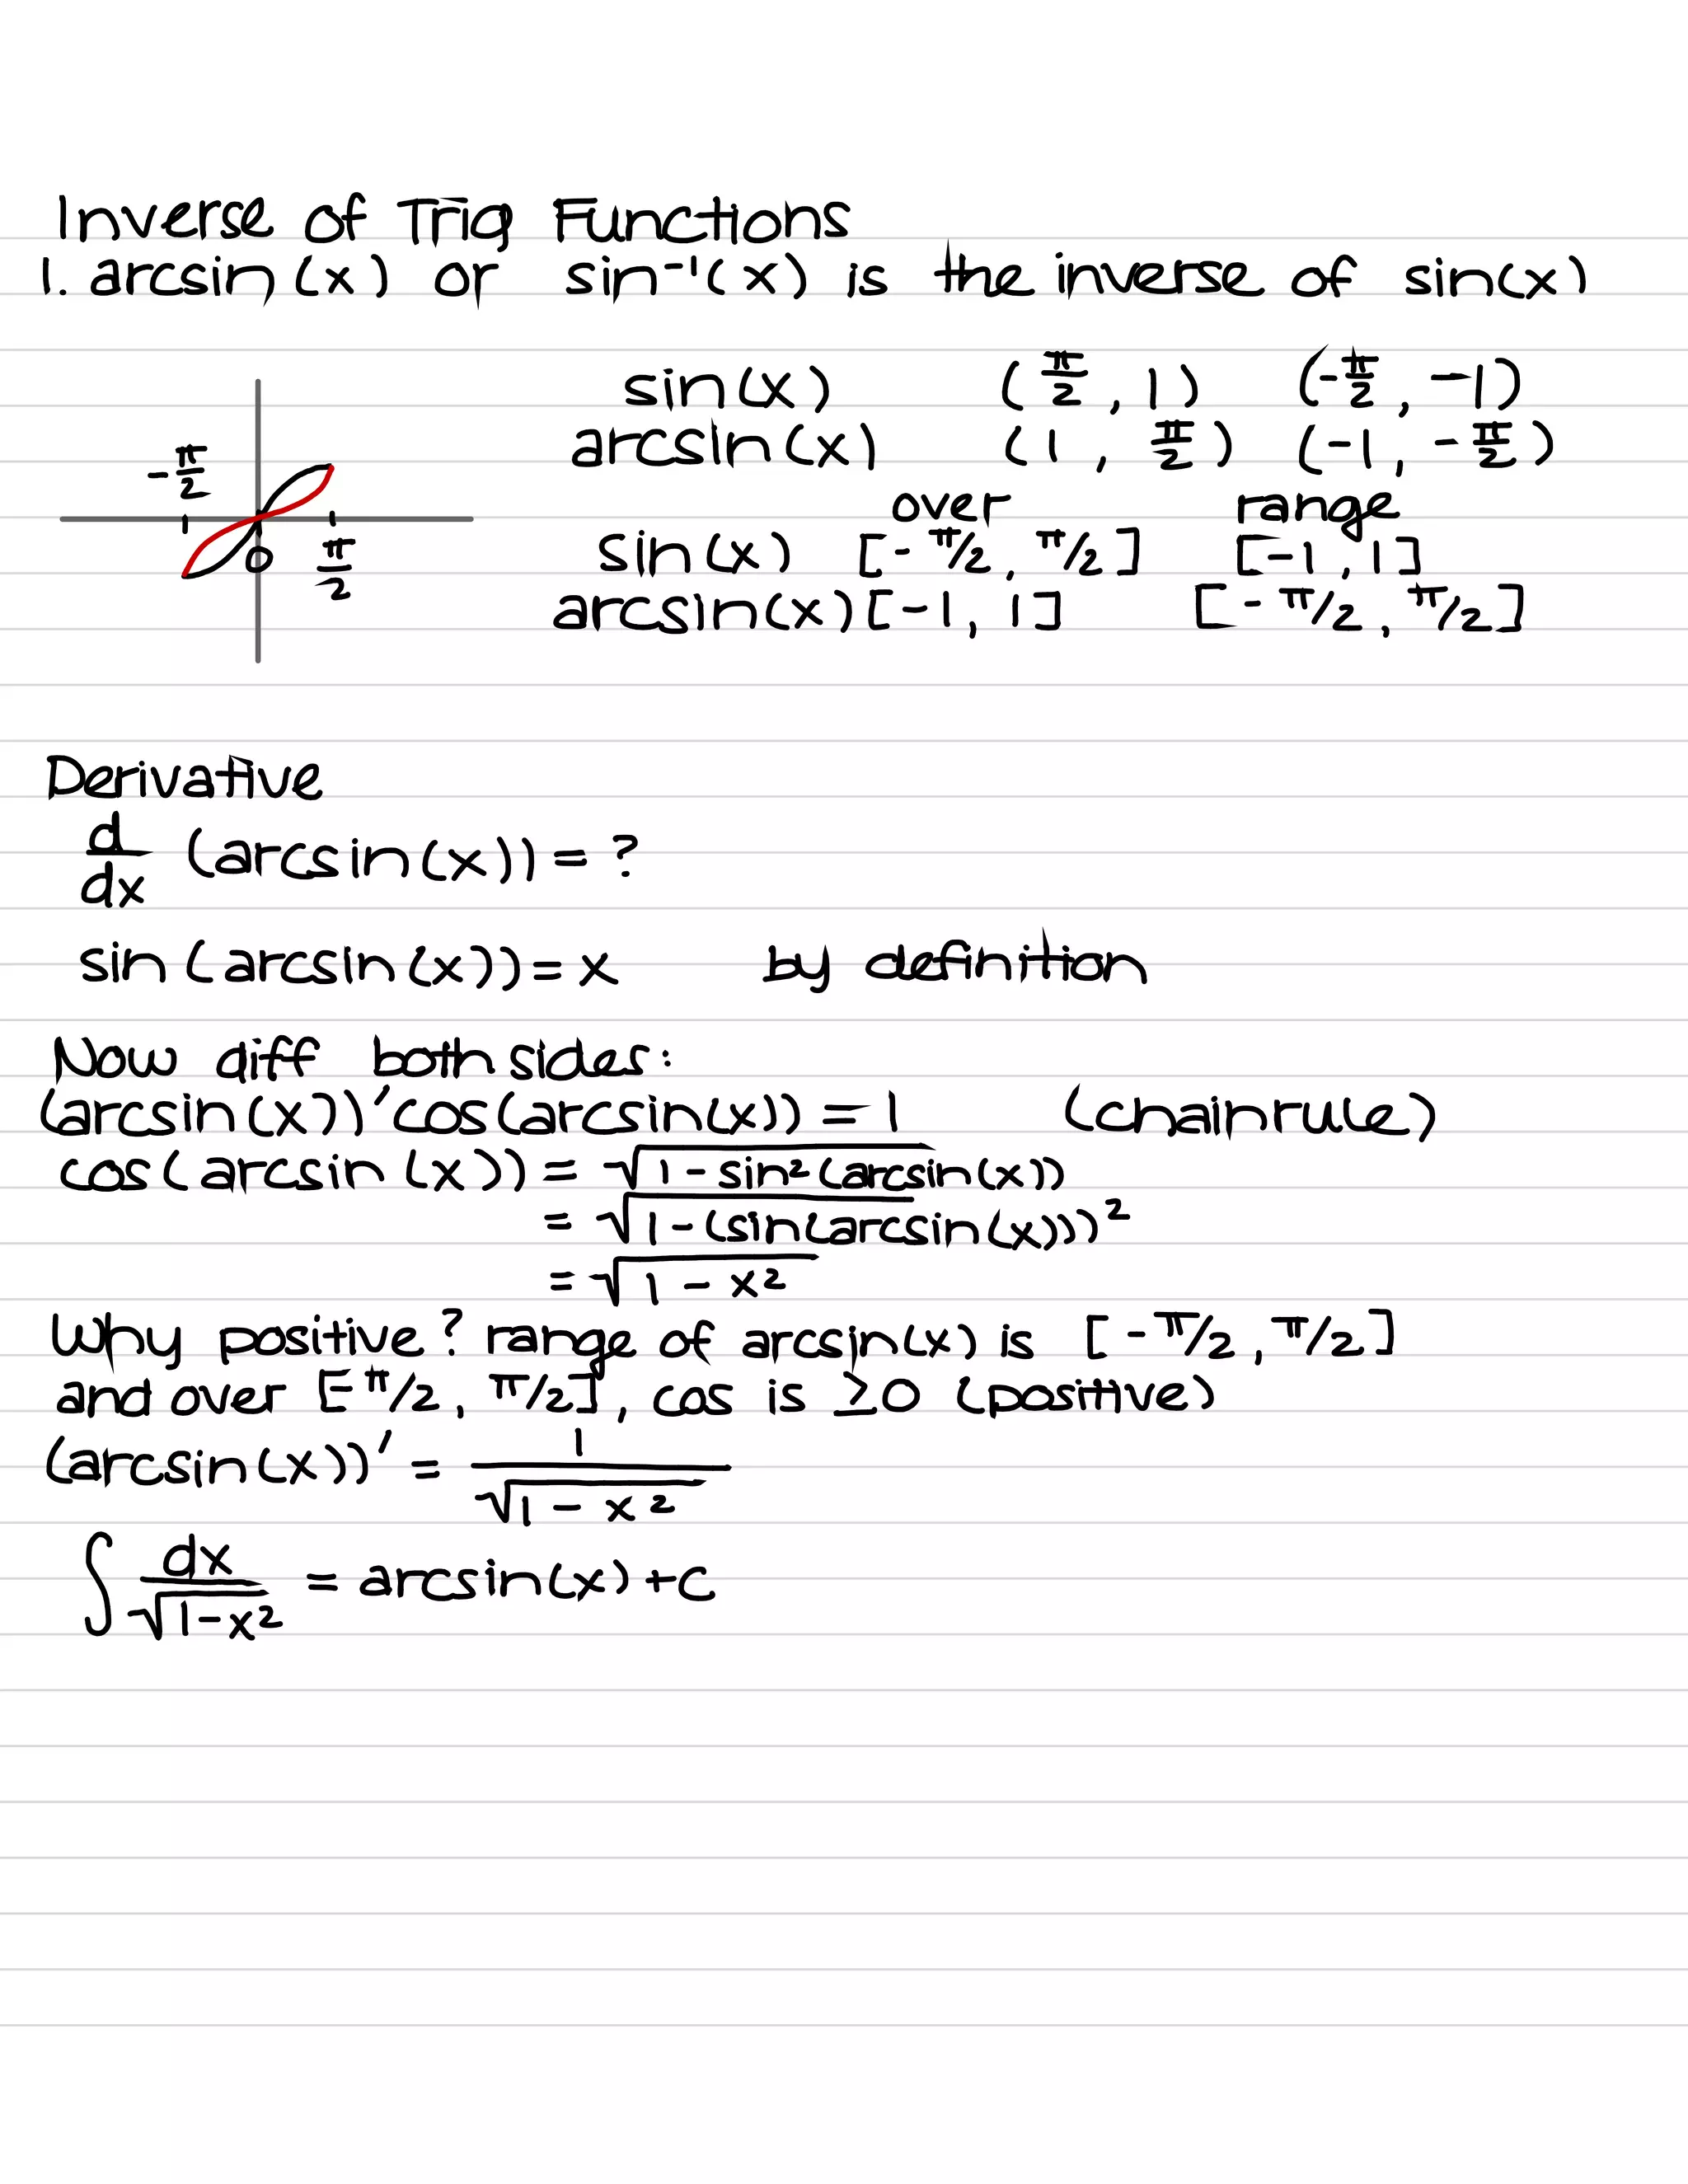 Inverse of Trig Functions
1. arcsin(x) or sin⁻¹(x) is the inverse of sin(x)
sin(x) (π/2, 1) (-π/2, -1)
arcsin(x) (1, π/2) (-1, -π/2)
over range
sin(x) [-π/2, π/2] [-1, 1]
arcsin(x) [-1, 1] [-π/2, π/2]
-π/2
1 1
0 π/2
Derivative
d/dx (arcsin(x)) = ?
sin(arcsin(x)) = x by definition
Now diff both sides:
(arcsin(x))' cos(arcsin(x)) = 1 (chain rule)
cos(arcsin(x)) = √1 - sin²(arcsin(x))
= √1 - (sin(arcsin(x)))²
= √1 - x²
Why positive? range of arcsin(x) is [-π/2, π/2]
and over [-π/2, π/2], cos is ≥0 (positive)
(arcsin(x))' = 1/√1 - x²
∫ dx/√1-x² = arcsin(x) + c